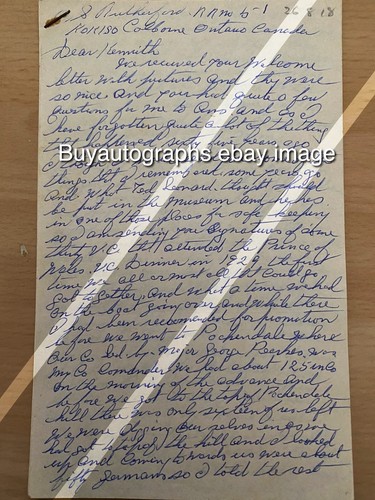 S Rutherford. RR no 5-1 26.8.18
KOK1SO Colborne Ontario Canada
Dear Kennith
We received your Welcome
letter with pictures and they were
so nice. And you had quite a few
Questions for me to Ans and as I
have forgotten quite a lot of the thing
that happened sixty five years ago
I
things that I remembered some years ago
and What Ted Leonard thought should
be put in the Museum and he has
in one of those places for safe keeping
so I am sending you signatures of some
thirty V.C. that attended the Prince of
Wales. VC Dinner in 1929 the first
time we all or most all that could go
Got together, and what a time we had
On the boat going over and while there
I had been recomended for promotion
before we went to Pachendale where
Our Co led by Major George Pearkes, was
My Co Comander We had about 125 in Co
On the morning of the advance and
before we got to the top of Pachendale
hill there was only sixteen of us left
We were digging Ourselves in as we
had got to top of the hill and I looked
up and Coming towards us were about
fifty Germans so I told the rest
Buyautographs ebay image